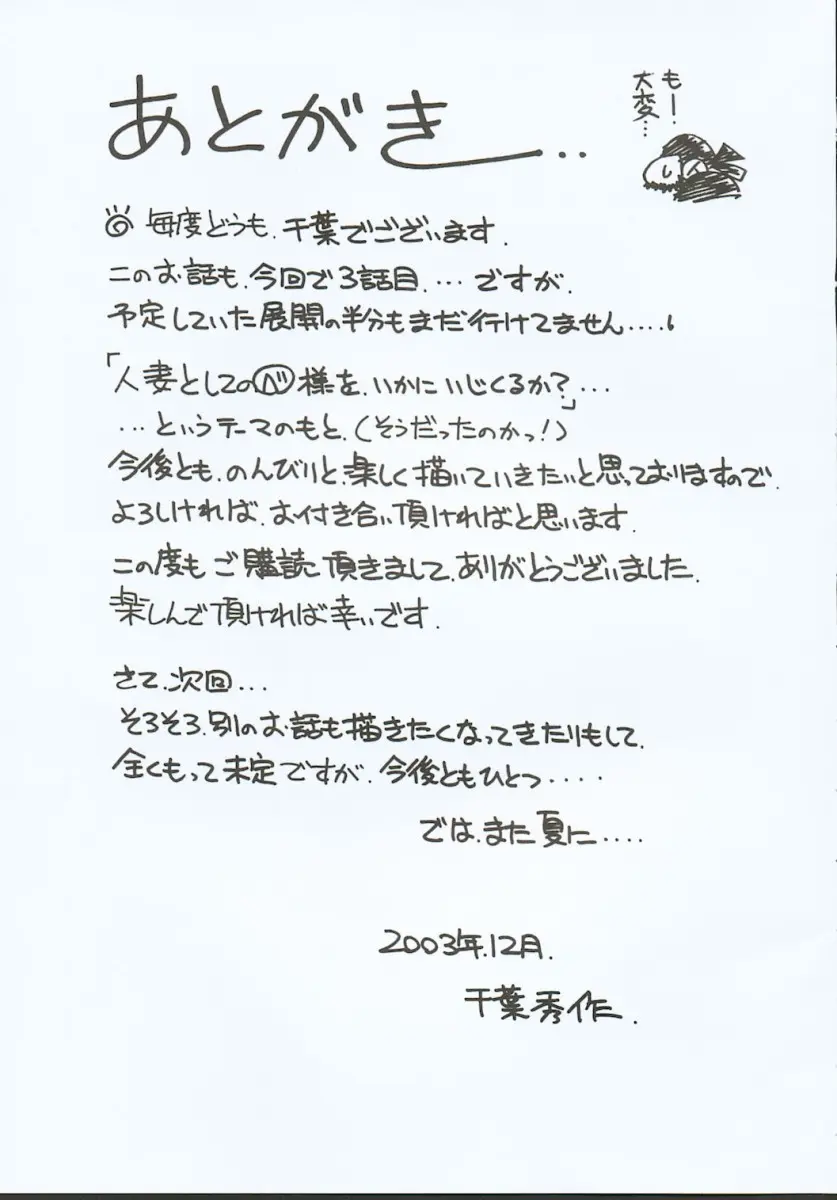 あとがき...
もー!
大変...
◎毎度どうも、千葉でございます.
このお話も、今回で3話目. ...ですが、
予定していた展開の半分もまだ行けてません....。
「人妻としてのⓋ様を、いかにいじくるか?...」
...というテーマのもと、(そうだったのかっ!)
今後とも、のんびりと、楽しく描いていきたいと思っておりますので、
よろしければ、お付き合い頂ければと思います.
この度もご購読頂きまして、ありがとうございました.
楽しんで頂ければ幸いです.
さて、次回...
そろそろ、別のお話も描きたくなってきたりもして、
全くもって未定ですが、今後ともひとつ....
では、また夏に....
2003年.12月.
千葉秀作.